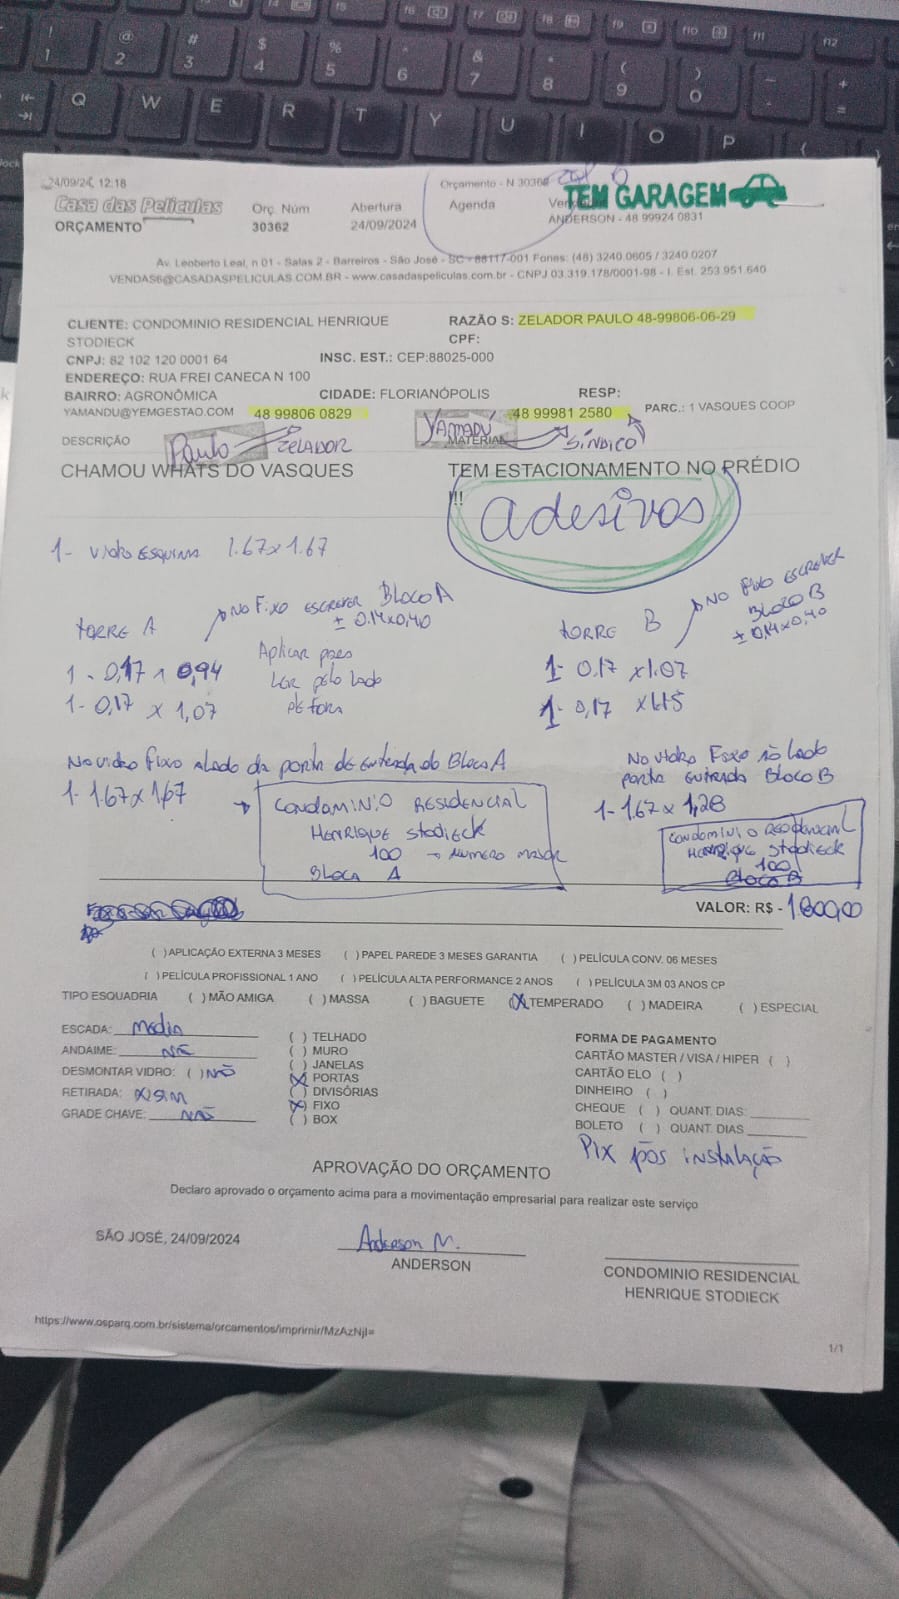 24/09/24, 12:18
Orçamento - N 30362
TEM GARAGEM
Casa das Películas
Orç. Núm
Abertura
Agenda
ORÇAMENTO
30362
24/09/2024
ANDERSON - 48 99924 0831
Av. Leoberto Leal, n 01 - Salas 2 - Barreiros - São José - SC - 88117-001 Fones: (48) 3240.0605 / 3240.0207
VENDAS6@CASADASPELICULAS.COM.BR - www.casadaspeliculas.com.br - CNPJ 03.319.178/0001-98 - I. Est. 253.951.640
CLIENTE: CONDOMINIO RESIDENCIAL HENRIQUE
STODIECK
RAZÃO S: ZELADOR PAULO 48-99806-06-29
CPF:
CNPJ: 82 102 120 0001 64
INSC. EST.: CEP:88025-000
ENDEREÇO: RUA FREI CANECA N 100
BAIRRO: AGRONÔMICA
CIDADE: FLORIANÓPOLIS
RESP:
YAMANDU@YEMGESTAO.COM
48 99806 0829
48 99981 2580
PARC.: 1 VASQUES COOP
DESCRIÇÃO
Paulo ZELADOR
YAMADÚ
MATERIAL
SÍNDICO
CHAMOU WHATS DO VASQUES
TEM ESTACIONAMENTO NO PRÉDIO
!!!
adesivos
1- Vidro ESQUINA 1.67x1.67
TORRE A
NO FIXO ESCREVER BLOCO A
± 0.14x0,40
1 - 0,17 x 0,94
1- 0,17 x 1,07
Aplicar para
LER pelo lado
DE fora
TORRE B
NO FIXO ESCREVER
BLOCO B
± 0,14x0,40
1- 0,17 x1.07
1- 0,17 x1.15
No vidro fixo ao lado da porta de entrada do Bloco A
1- 1.67x1,67
CONDOMINIO RESIDENCIAL
HENRIQUE Stodieck
100 → NUMERO MAIOR
BLOCA A
No vidro Fixo ao lado
porta entrada Bloco B
1- 1.67 x 1,28
CONDOMINIO RESIDENCIAL
HENRIQUE Stodieck
100
BLOCO B
VALOR: R$ - 1.800,00
( ) APLICAÇÃO EXTERNA 3 MESES ( ) PAPEL PAREDE 3 MESES GARANTIA ( ) PELÍCULA CONV. 06 MESES
( ) PELÍCULA PROFISSIONAL 1 ANO ( ) PELÍCULA ALTA PERFORMANCE 2 ANOS ( ) PELÍCULA 3M 03 ANOS CP
TIPO ESQUADRIA ( ) MÃO AMIGA ( ) MASSA ( ) BAGUETE (X) TEMPERADO ( ) MADEIRA ( ) ESPECIAL
ESCADA: Media
ANDAIME:
DESMONTAR VIDRO: ( ) NÃO
RETIRADA: (X) SIM
GRADE CHAVE: NÃO
( ) TELHADO
( ) MURO
( ) JANELAS
(X) PORTAS
( ) DIVISÓRIAS
(X) FIXO
( ) BOX
FORMA DE PAGAMENTO
CARTÃO MASTER / VISA / HIPER ( )
CARTÃO ELO ( )
DINHEIRO ( )
CHEQUE ( ) QUANT. DIAS:
BOLETO ( ) QUANT. DIAS
PIX pós instalação
APROVAÇÃO DO ORÇAMENTO
Declaro aprovado o orçamento acima para a movimentação empresarial para realizar este serviço
SÃO JOSÉ, 24/09/2024
Anderson M.
ANDERSON
CONDOMINIO RESIDENCIAL
HENRIQUE STODIECK
https://www.osparq.com.br/sistema/orcamentos/imprimir/MzAzNjI=
1/1